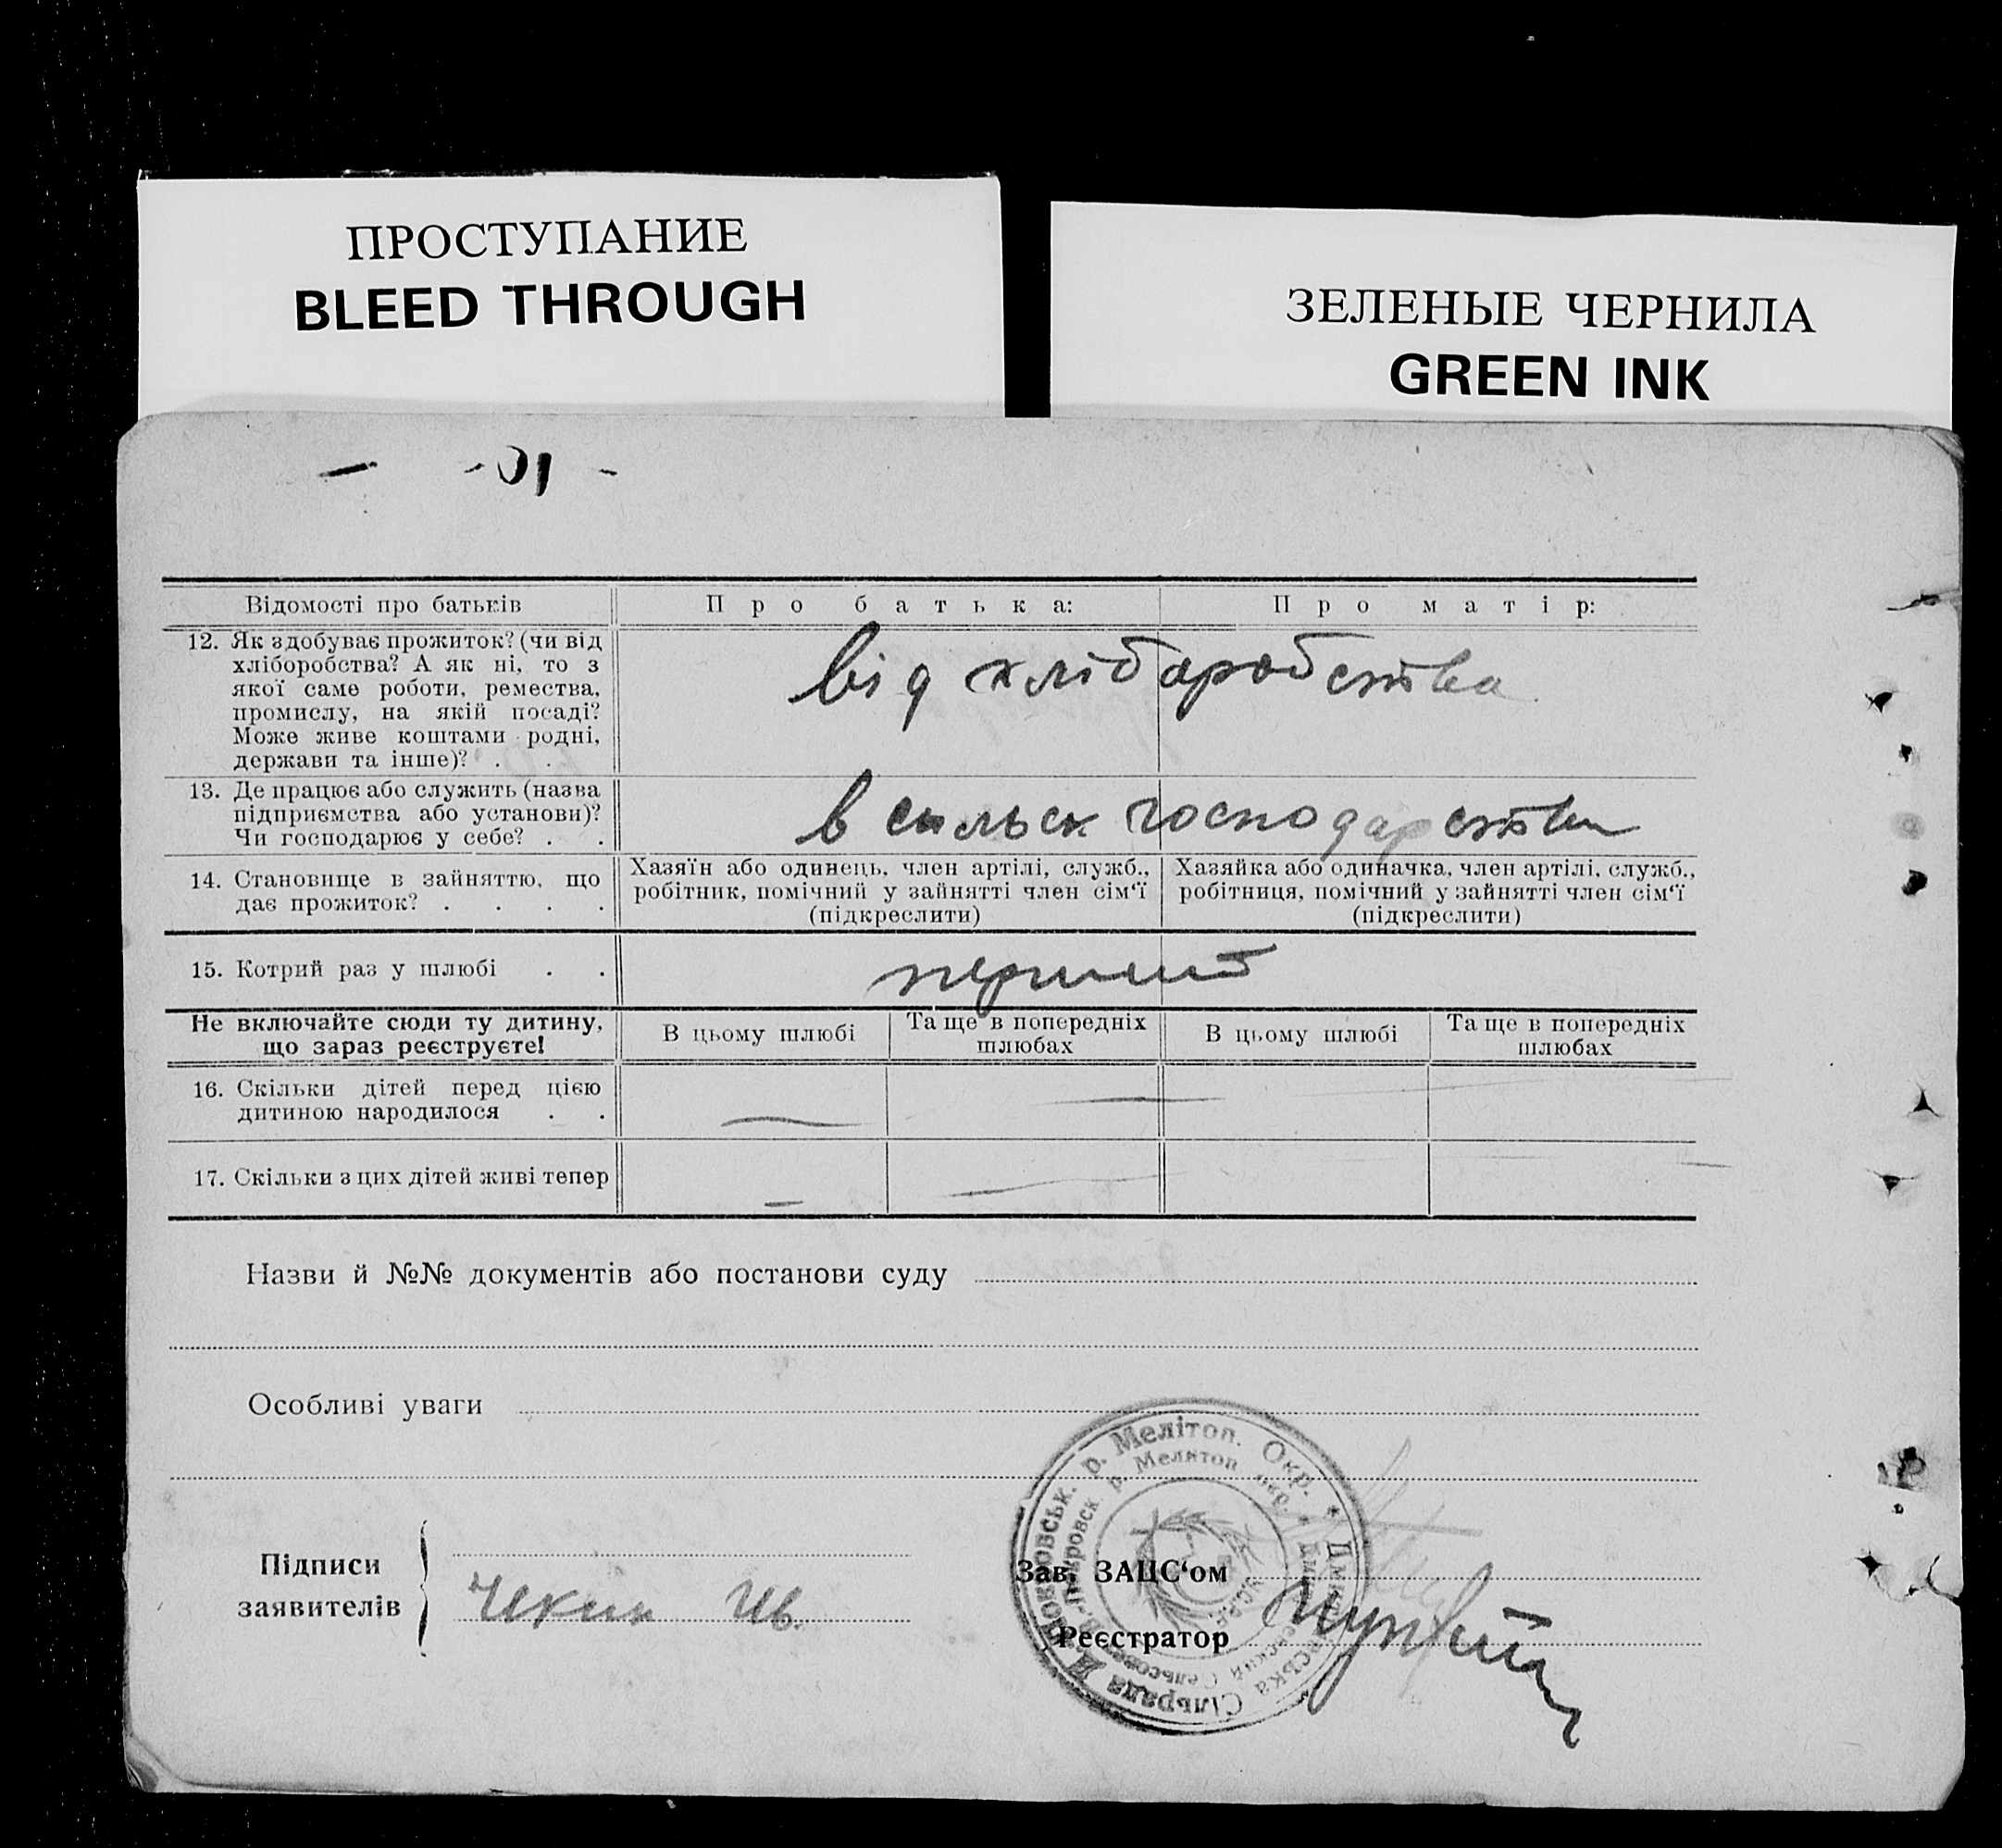 ПРОСТУПАНИЕ
BLEED THROUGH
ЗЕЛЕНЫЕ ЧЕРНИЛА
GREEN INK
Відомості про батьків
Про батька:
Про матір:
12. Як здобуває прожиток? (чи від
хліборобства? А як ні, то з
якої саме роботи, ремества,
промислу, на якій посаді?
Може живе коштами родні,
держави та інше)? . .
від хлібаробства
13. Де працює або служить (назва
підприємства або установи)?
Чи господарює у себе? . .
в сильск господарстви
14. Становище в зайняттю, що
дає прожиток? . . . .
Хазяїн або одинець, член артілі, служб.,
робітник, помічний у зайнятті член сім‘ї
(підкреслити)
Хазяйка або одиначка, член артілі, служб.,
робітниця, помічний у зайнятті член сім‘ї
(підкреслити)
15. Котрий раз у шлюбі . .
перший
Не включайте сюди ту дитину,
що зараз реєструєте!
В цьому шлюбі
Та ще в попередніх
шлюбах
В цьому шлюбі
Та ще в попередніх
шлюбах
16. Скільки дітей перед цією
дитиною народилося . .
17. Скільки з цих дітей живі тепер
Назви й №№ документів або постанови суду
Особливі уваги
р. Мелітоп. Окр.
р. Мелитоп. окр.
Сільрада
Підписи
заявителів
Чекин Ив.
Зав. ЗАЦС‘ом
Реєстратор